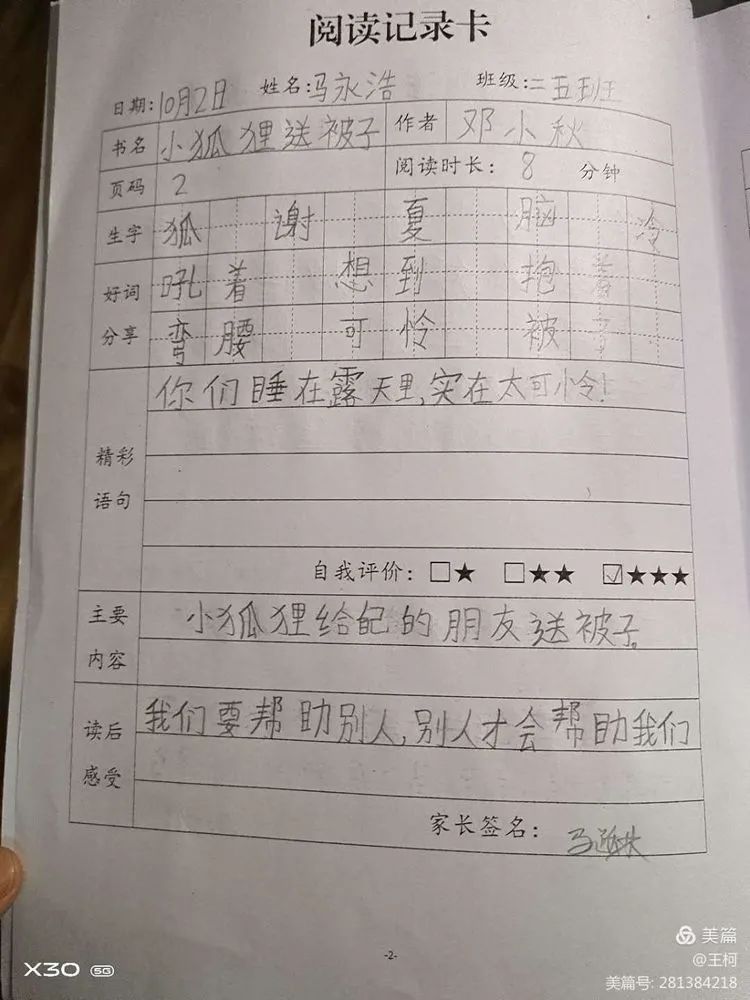 阅读记录卡
日期:10月2日 姓名:马永浩 班级:二五班
书名 小狐狸送被子 作者 邓小秋
页码 2 阅读时长: 8 分钟
生字 狐 谢 夏 脑 冷
好词 吼着 想到 抱着
分享 弯腰 可怜 被子
你们睡在露天里,实在太可怜!
精彩
语句
自我评价: □★ □★★ ☑★★★
主要 小狐狸给自己的朋友送被子。
内容
我们要帮助别人,别人才会帮助我们
读后
感受
家长签名: 马
-2-
X30 5G
美篇
@王柯
美篇号: 281384218